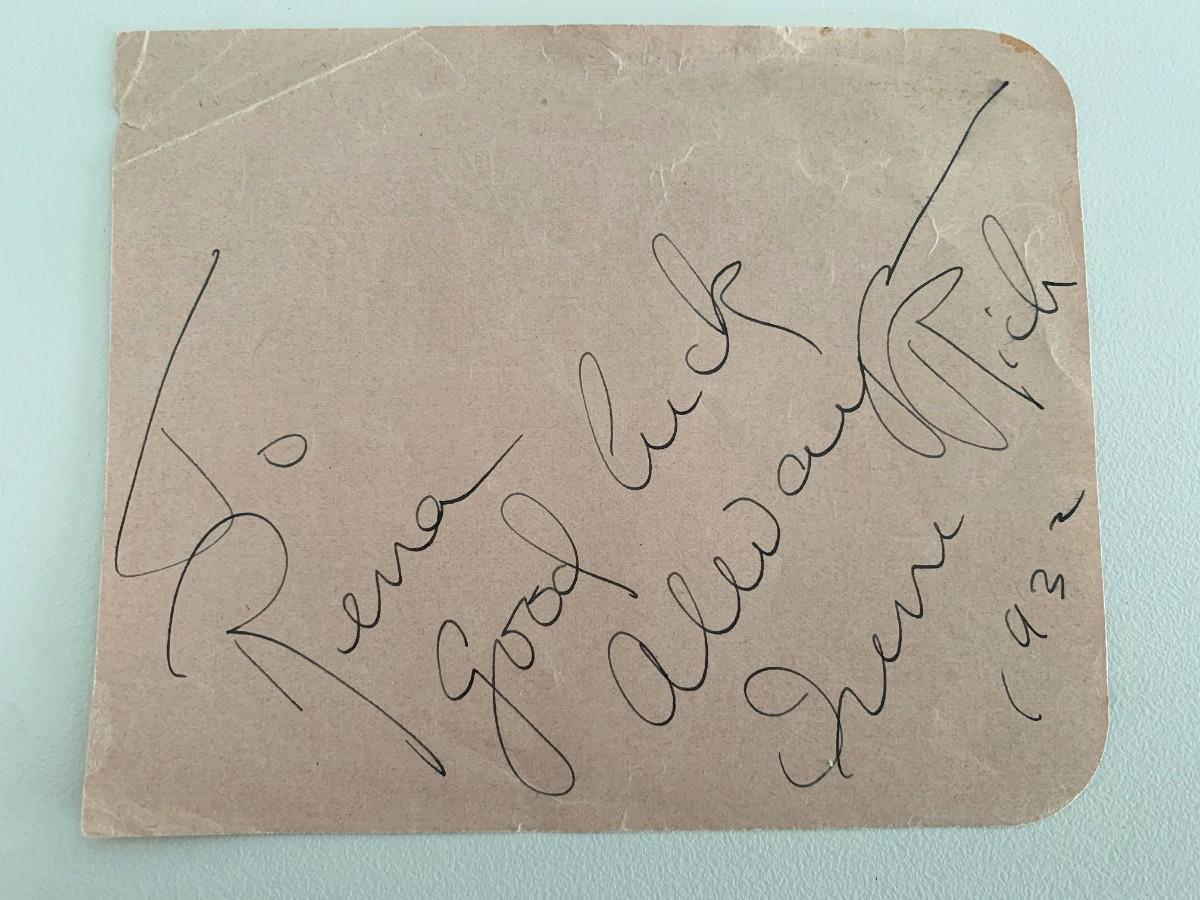 To
Rena
Good luck
Allways
Irene Rich
1932